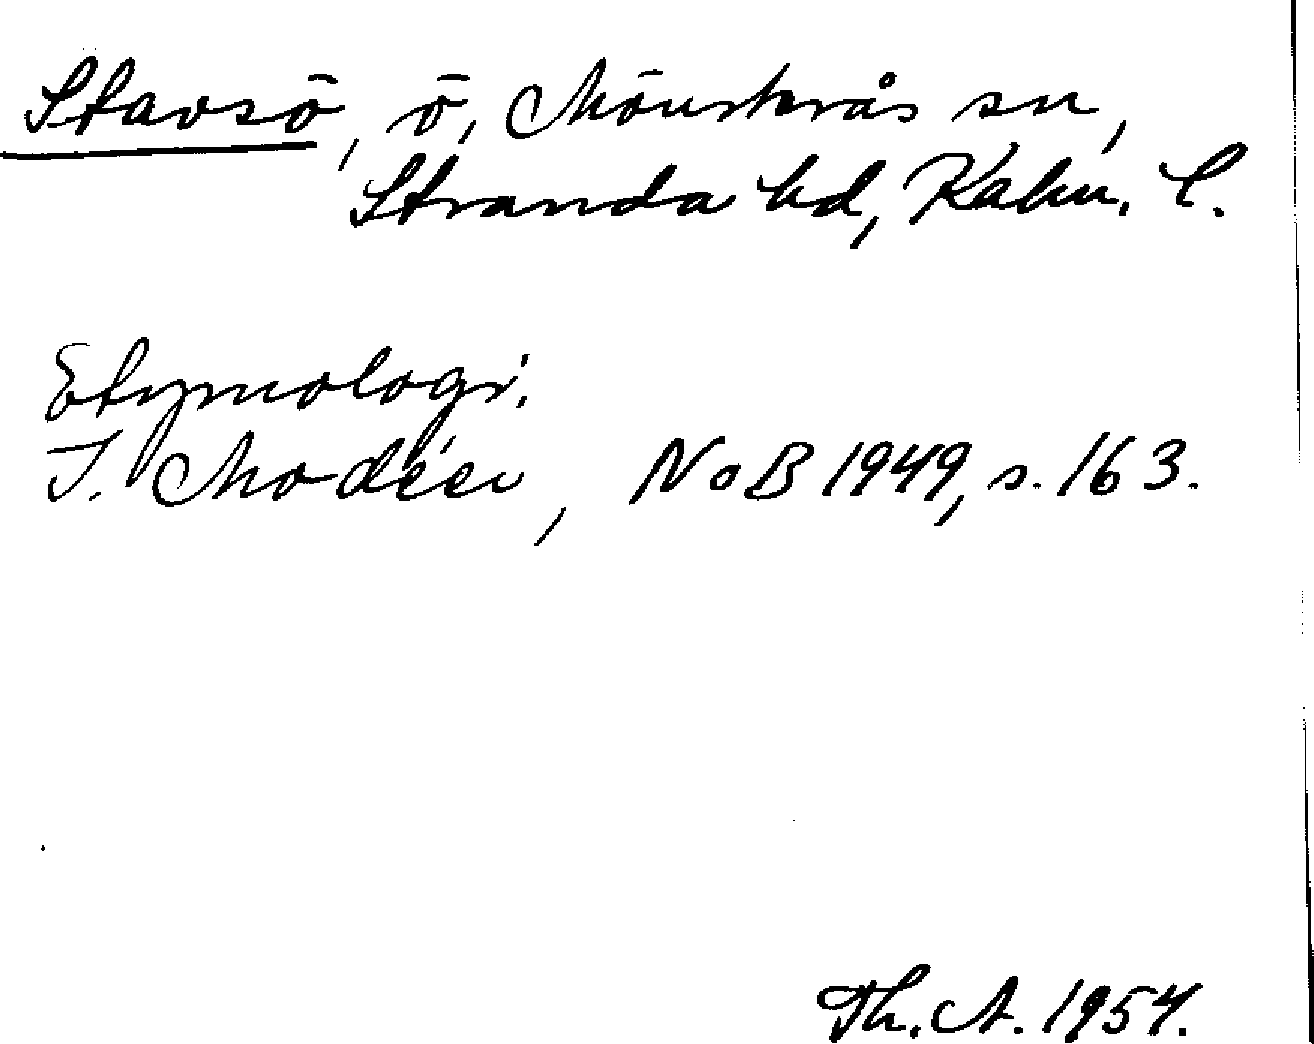 Stavsö, ö, Mönsterås sn,
Stranda hd, Kalm. l.
Etymologi.
I. Modéer, NoB 1949, s. 163.
Th. A. 1954.